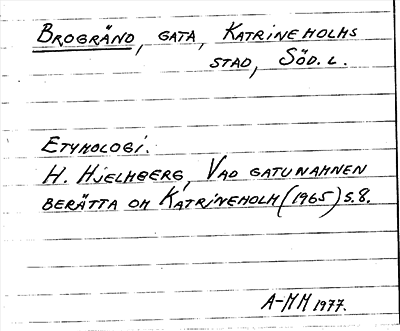 BROGRÄND, GATA, KATRINEHOLMS
STAD, SÖD. L.
ETYMOLOGI.
H. HJELMBERG, VAD GATUNAMNEN
BERÄTTA OM KATRINEHOLM (1965) S. 8.
A-MM 1977.